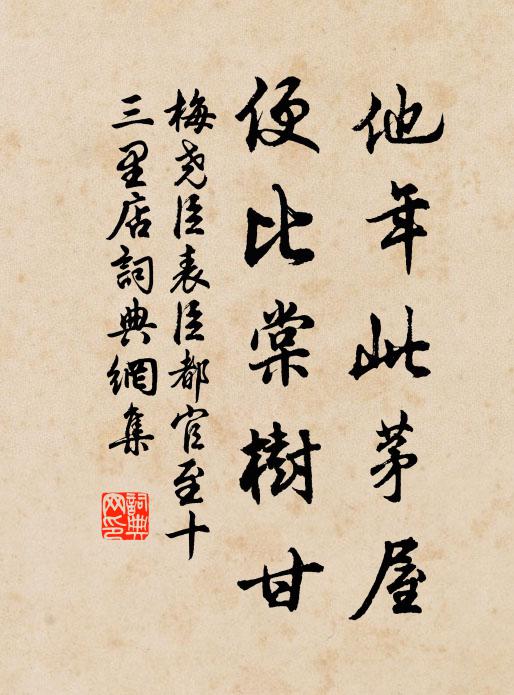 他年此茅屋
便比棠樹甘
梅尧臣表臣都官至十
三里店詞典網集
詞典網印